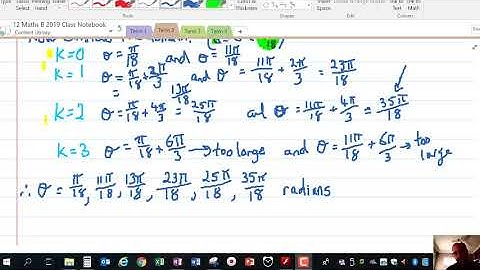 12 Maths B 2019 Class Notebook
Content Library
Term 1
Term 2
Term 3
Term 4
K=0 θ = π/18 and θ = 11π/18
K=1 θ = π/18 + 2π/3 and θ = 11π/18 + 2π/3 = 23π/18
= 13π/18
K=2 θ = π/18 + 4π/3 = 25π/18 and θ = 11π/18 + 4π/3 = 35π/18
K=3 θ = π/18 + 6π/3 → too large and θ = 11π/18 + 6π/3 → too large
∴ θ = π/18, 11π/18, 13π/18, 23π/18, 25π/18, 35π/18 radians